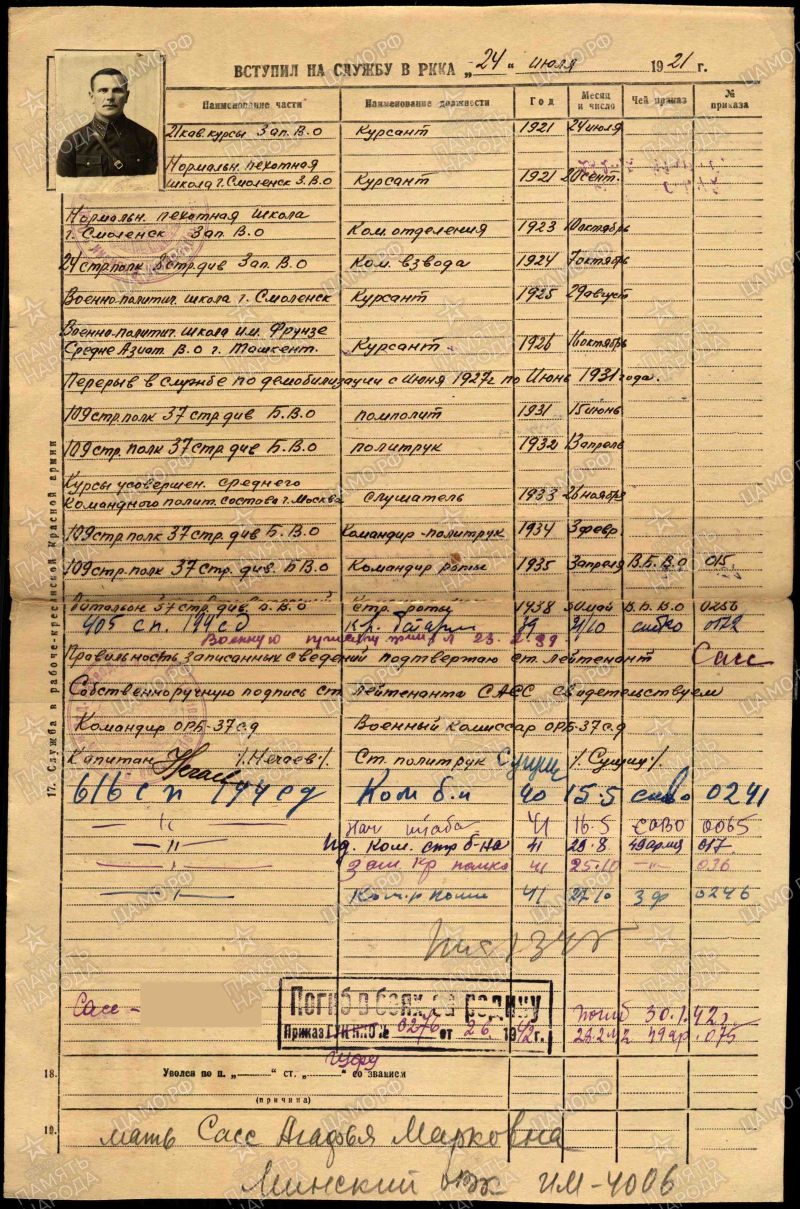 ВСТУПИЛ НА СЛУЖБУ В РККА „24“ июля 1921 г.
Наименование части Наименование должности Год Месяц и число Чей приказ № приказа
21 кав. курсы Зап. В.О Курсант 1921 24 июля
Нормальн. пехотная
школа г. Смоленск З. ВО Курсант 1921 20 сент.
Нормальн. пехотная школа
г. Смоленск Зап. В.О Ком. отделения 1923 10 октябрь
24 стр. полк 8 стр. див Зап. В.О Ком. взвода 1924 7 октябрь
Военно-политич. школа г. Смоленск Курсант 1925 29 август
Военно-политич. школа им. Фрунзе
Средне Азиат. В.О г. Ташкент. Курсант 1926 16 октябрь
Перерыв в службе по демобилизации с июня 1927г по Июнь 1931 года.
109 стр. полк 37 стр. див Б.В.О помполит 1931 15 июнь
109 стр. полк 37 стр. див Б.В.О политрук 1932 13 апрель
Курсы усовершен. среднего
командного полит. состава г. Москва слушатель 1933 26 ноября
109 стр. полк 37 стр. див Б.В.О Командир-политрук 1934 3 февр.
109 стр. полк 37 стр. див Б.В.О Командир роты 1935 3 апреля В.Б.В.О 015
37 стр. див. стр. роты 1938 30 май 0256
405 сп. 194 сд 39 31/10 сибво
23.2.39
Правильность записанных сведений подтвертаю ст. лейтенант Сасс
Собственноручную подпись ст. лейтенанта САСС свидетельствуем
Командир ОРБ-37 с.д Военный комиссар ОРБ-37 с.д
Капитан Нечаев /Нечаев/. Ст. политрук Сущиц /Сущиц/.
616 сп 194 сд Ком б-н 40 15.5 сибво 0241
—"— Нач штаба 41 16.5 САВО 0065
—"— Ком. стр б-на 41 29.8 49 арм 017
Зам. Кр полка 41 25.10 —"— 036
—"— Ком-р полка 41 27.10 З ф 0246
Сасс –
Погиб в боях за родину
Приказ ГУКНКО № 0276 от 26 1942 г.
погиб 30.1.42 г
28.2.42 49 ар. 075
18. Уволен по п. „——“ ст. „——“ со званием
(причина)
19. мать Сасс Агафья Марковна
Минский ОВК ИМ-4006
17. Служба в рабоче-крестьянской Красной армии
ПАМЯТЬ НАРОДА
ЦАМО.РФ